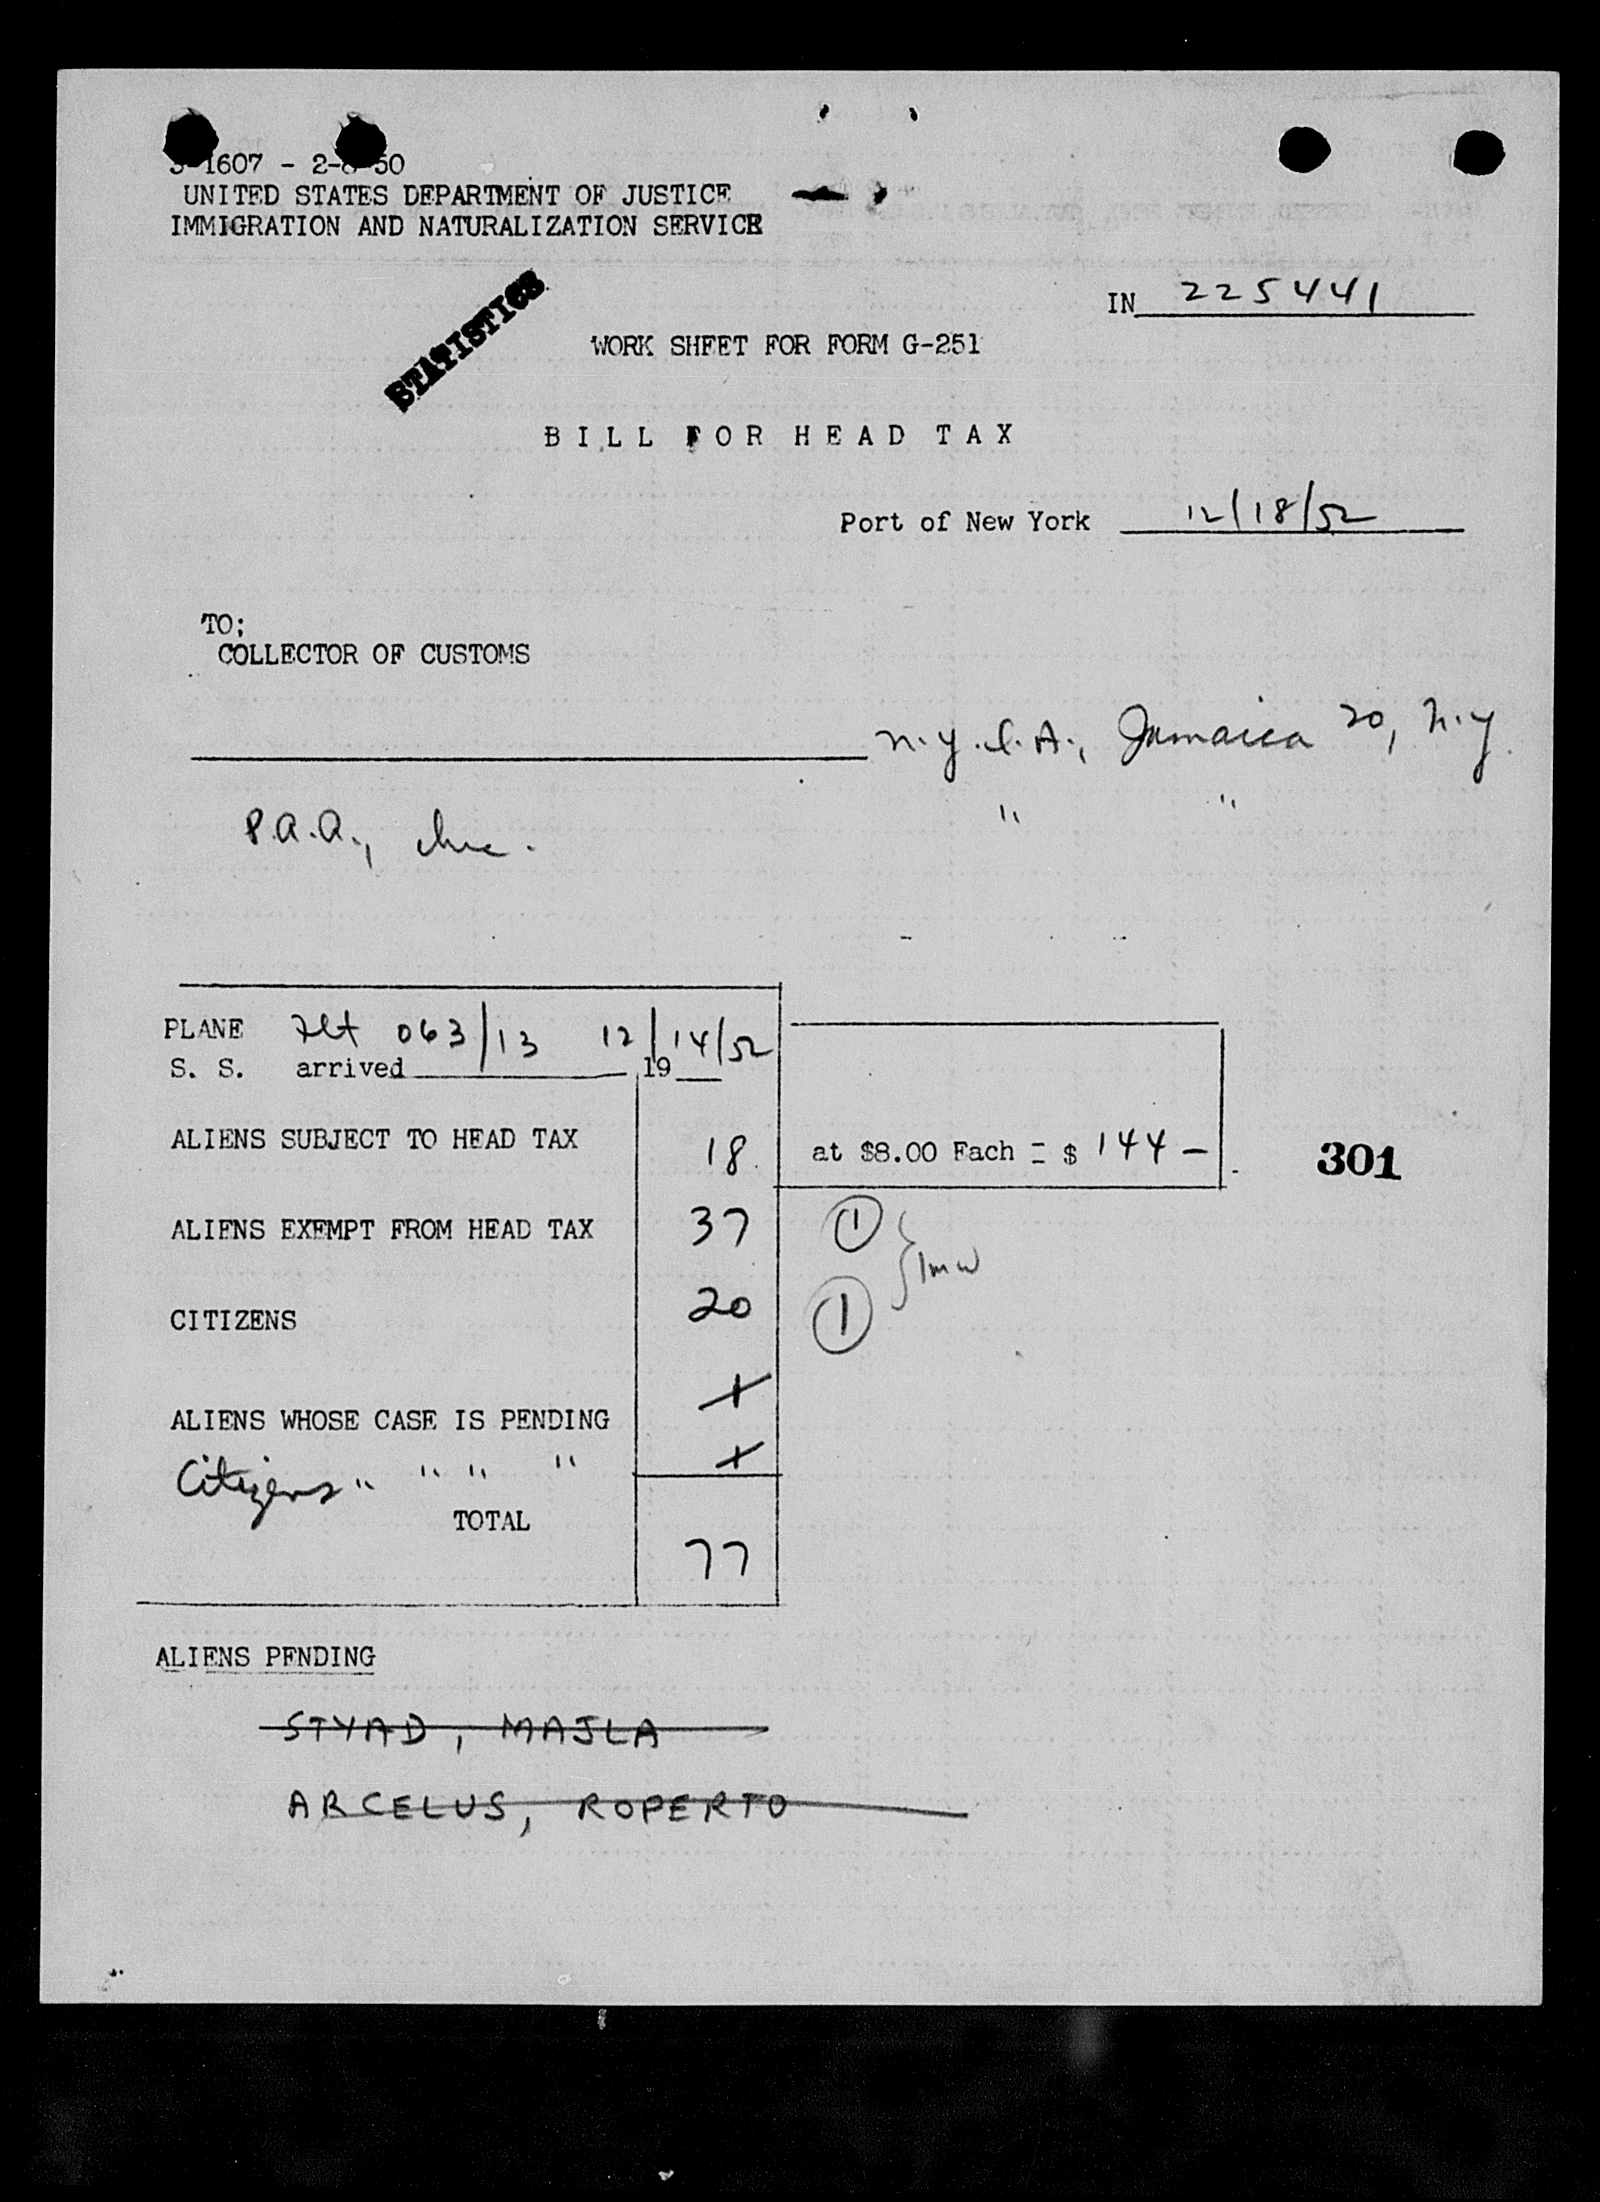 1607 - 2-8-50
UNITED STATES DEPARTMENT OF JUSTICE
IMMIGRATION AND NATURALIZATION SERVICE
STATISTICS
IN 225441
WORK SHEET FOR FORM G-251
BILL FOR HEAD TAX
Port of New York 12/18/52
TO;
COLLECTOR OF CUSTOMS
N.Y.I.A., Jamaica 20, N.Y.
P.A.A., Inc. " "
PLANE Flt 063/13 12/14/52
S. S. arrived 19
ALIENS SUBJECT TO HEAD TAX 18 at $8.00 Each = $ 144 — 301
ALIENS EXEMPT FROM HEAD TAX 37 1
1mw
CITIZENS 20 1
ALIENS WHOSE CASE IS PENDING
Citizens " " " "
TOTAL 77
ALIENS PENDING
STYAD, MAJLA
ARCELUS, ROPERTO